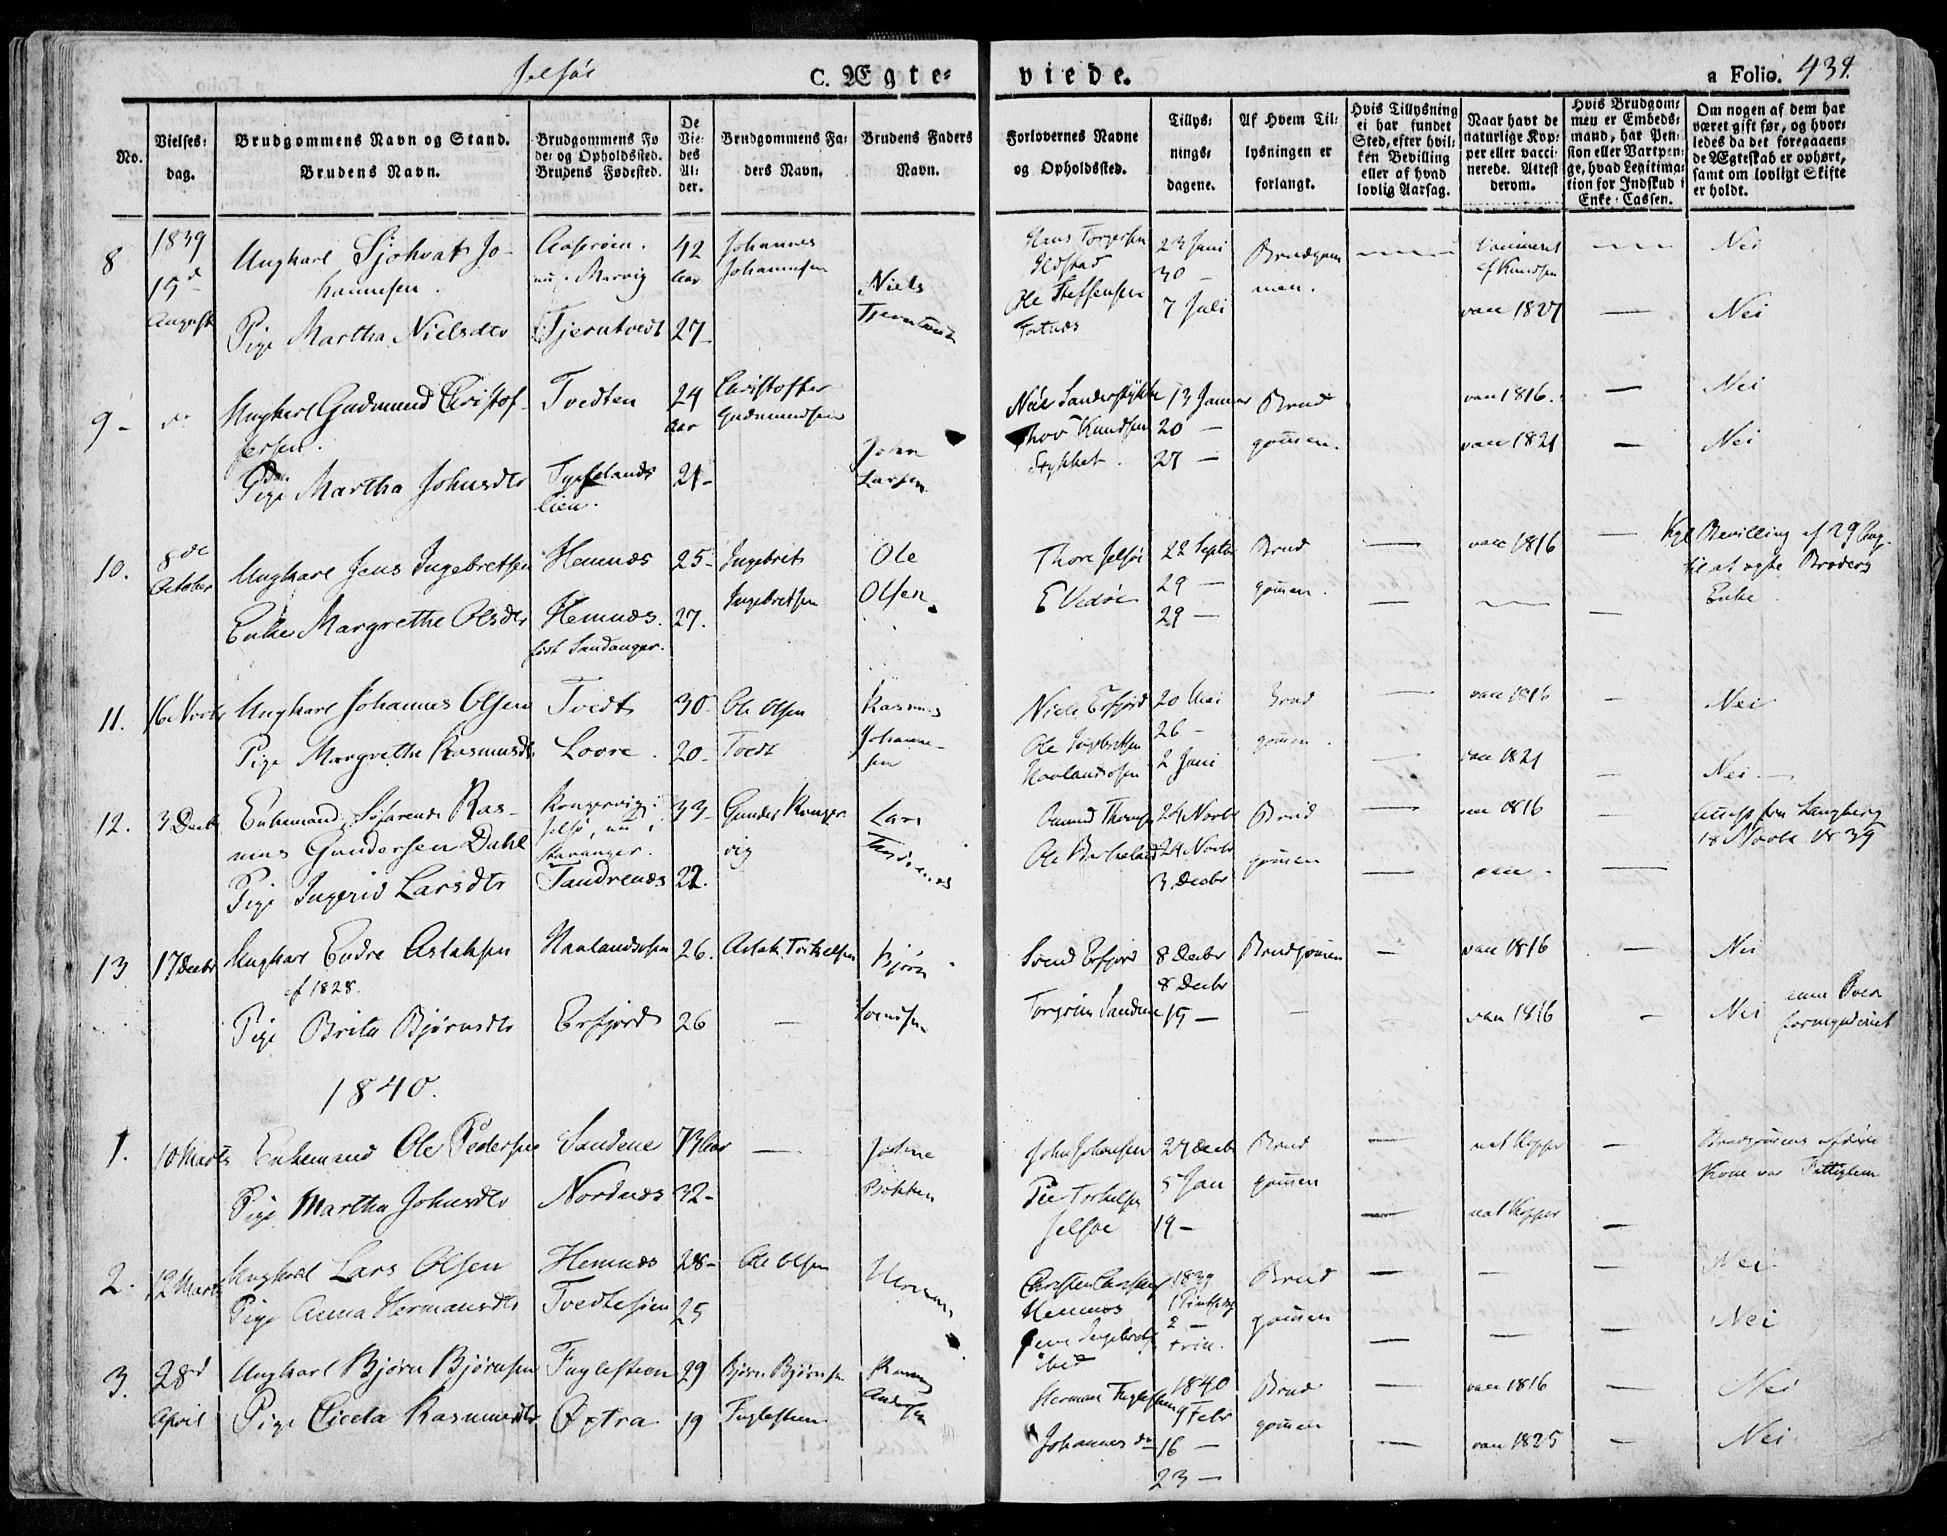 Jelsøe
C. Ægte-
viede.
a Folio. 439.
No.
Vielses-
dag.
Brudgommens Navn og Stand.
Brudens Navn.
Brudgommens Fø
de- og Opholdssted.
Brudens Fødested.
De
Vie-
des
Al-
der.
Brudgommens Fa-
ders Navn.
Brudens Faders
Navn.
Forlovernes Navne
og Opholdssted.
Tillys-
nings-
dagene.
Af Hvem Til-
lysningen er
forlangt.
Hvis Tillysning
ei har fundet
Sted, efter hvil-
ken Bevilling
eller af hvad
lovlig Aarsag.
Naar havt de
naturlige Kop-
per eller vacci-
nerede. Attest
derom.
Hvis Brudgom-
men er Embeds-
mand, har Pen-
sion eller Vartpen-
ge, hvad Legitima-
tion for Indskud i
Enke-Cassen.
Om nogen af dem har
været gift før, og hvor-
ledes da det foregaaen-
de Ægteskab er ophørt,
samt om lovligt Skifte
er holdt.
8
1839
19d
August
Ungkarl Sjohvat Jo-
hannesen.
Pige Martha Nielsdtr
nu Marvig
Tjerntvedt
42
Aar
27
Johannes
Johannesen
Niels
Tjerntvedt
Hans Torgersen
Ole Steffensen
Fatnæs
23 Juni
30 —
7 Juli
Brudgom
men.
Vaccineret
af Knudsen
vacc 1827
Nei
Nei
9 -
do
Ungkarl Gudmund Christof-
fersen.
Pige Martha Johnsdtr
Tvedten
lien.
24
Aar
21-
Christoffer
Gudmundsen
John
Larsen
Thor Knudsen
Stykket.
13 Januar
20 —
27 —
Brud
gommen.
vacc 1816.
vacc 1821
Nei
Nei
10.
8de
October
Ungkarl Jens Ingebretsen
Enke Margrethe Olsdtr
Hemnæs
Hemnæs.
født Sandanger.
25-
27.
Ingebret
Ingebretsen
Ole
Olsen
Thore Jelsøe
E Vedøe
22 Septbr
29 —
29 —
Brud
gommen.
vacc 1816
Kgl Bevilling af 29 Aug.
til at ægte Broders
Enke
11.
16 Novbr
Ungkarl Johannes Olsen
Pige Margrethe Rasmusdtr
Tvedt
Lovre.
30-
20-
Ole Olsen
Tvedt
Rasmus
Johanne-
sen
Niels Erfjord
Ole Ingebretsen
20 Mai
26 —
2 Juni
Brud
gommen.
vacc 1816
vacc 1821
Nei
Nei
12.
3 Decbr
Enkemand, Søfarende Ras-
mus Gundersen Dahl
Pige Ingerid Larsdtr
Kongsvig i
Jelsø, nu i
Stavanger.
Tandrenæs
33-
22.
Gunder Kongs
vig
Lars
Tandrenæs
24 Novbr
24 Novbr
3 Decbr
Brud
gommen
vacc 1816
vacc
Attest fra Langberg
18 Novbr 1839
13
17 Decbr
Ungkarl Endre Aslaksen
af 1828.
Pige Brita Bjørnsdtr
Erfjord
26.
26
Aslak Torkelsen
Bjørn
Svendsen
Svend Erfjord
Torgrim Sandene
8 Decbr
8 Decbr
15 —
Brudgommen
vacc 1816
vacc 1816
Nei
Nei
formynderiet
1840.
1.
10 Marts
Enkemand Ole Pedersen
Pige Martha Johnsdtr
Sandene
Nordnæs
73 Aar
32-
Bakken
John Johansen
Per Torkelsen
Jelsøe
27 Decbr
5 Jan
19 —
Brud
gommen
nat Kopper
nat Kopper
Brudgommens afdøde
Kone var Fattiglem
2.
12 Marts
Ungkarl Lars Olsen
Pige Anna Hermansdtr
Hemnæs
Tvedtesien
28-
25
Ole Olsen
Herman
Christen Christensen
Hemnæs
Jens Ingebretsen
ibid
1839
2 —
trin.
Brud
gommen
Nei
Nei
3.
28d
April
Ungkarl Bjørn Bjørnsen
Pige Cicela Rasmusdtr
Fuglesteen
Øxtra
29
19
Bjørn Bjørnsen
Fuglesteen
Rasmus
Andersen
Herman Fuglesteen
Johannes do
1840
9 Febr
16 —
23 —
Brud
gommen
vacc 1816
vacc 1825
Nei
Nei